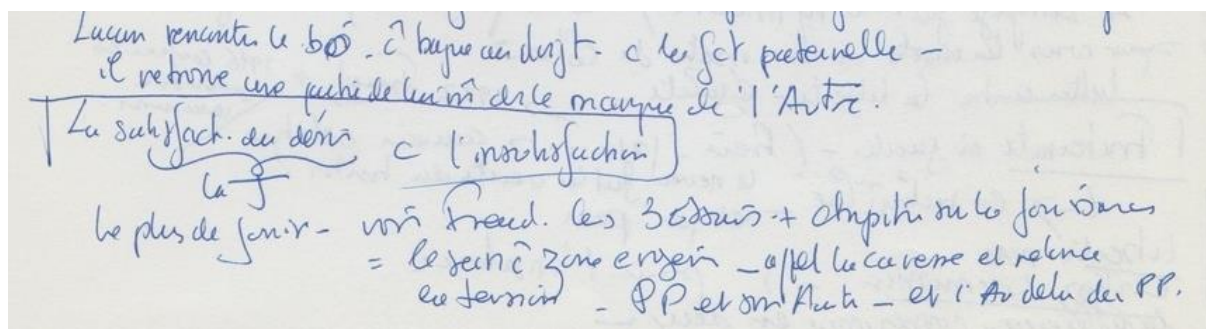 Lacan rencontre le b - ĉ bague au doigt - c la fct paternelle -
il retrouve une partie de lui m̂ ds le manque de l'Autre.
La satisfact. du désir c l'insatisfaction
La
Le plus de jouir - voir Freud. les 3 Essais + chapitre sur la jouissance
= le sein ĉ zone érogène - appel la caresse et relance
la tension = PP et son Autre - et l'Au delà du PP.